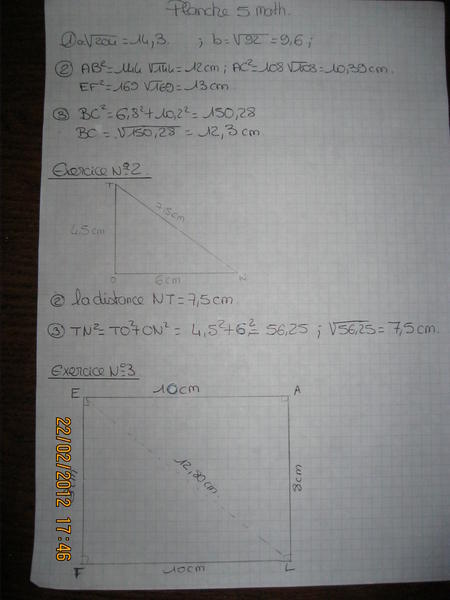 Planche 5 math.
① a √204 = 14,3. ; b = √92 = 9,6 ;
② AB² = 144 √144 = 12cm ; AC² = 108 √108 = 10,39 cm.
EF² = 169 √169 = 13cm.
③ BC² = 6,8² + 10,2² = 150,28
BC = √150,28 = 12,3 cm.
Exercice N°2
T
7,5cm
4,5cm
O
6cm
N
② la distance NT = 7,5cm.
③ TN² = TO² + ON² = 4,5² + 6² = 56,25 ; √56,25 = 7,5 cm.
Exercice N°3
10cm
E
A
12,80cm
8cm
F
10cm
L
22/02/2012 17:46